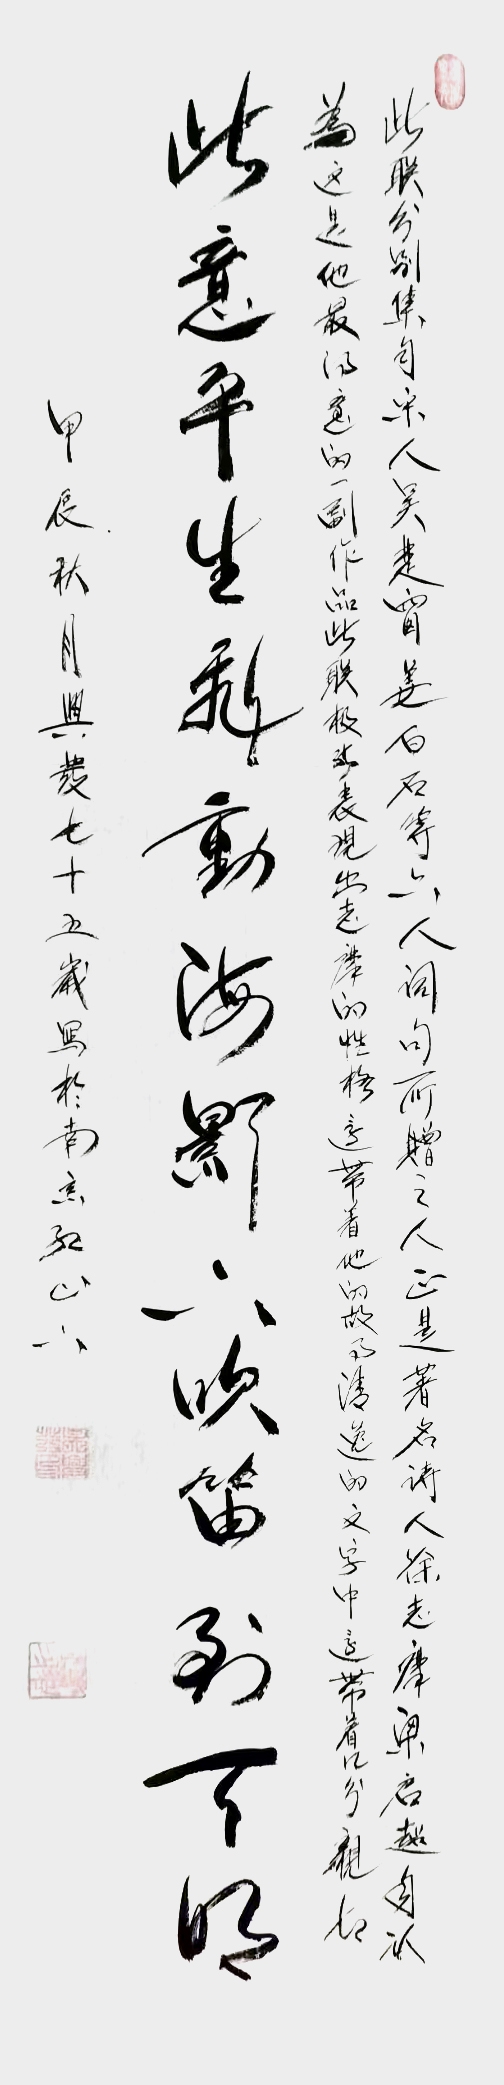 此联分别集自宋人吴梦窗姜白石等六人词句所赠之人正是著名诗人徐志摩梁启超自认
為这是他最得意的一副作品此联极能表现出志摩的性格還带着他的故事清逸的文字中還带着几分親切
此意平生飛動海影下吹笛到天明
甲辰秋月興發七十五歲寫於南京紅山下